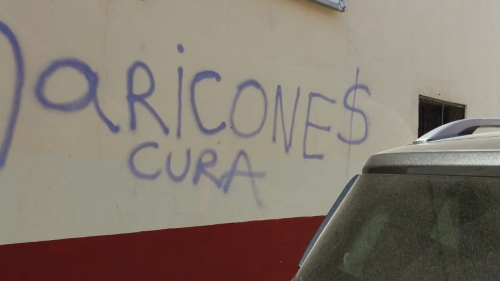 aRICONE$
CURA